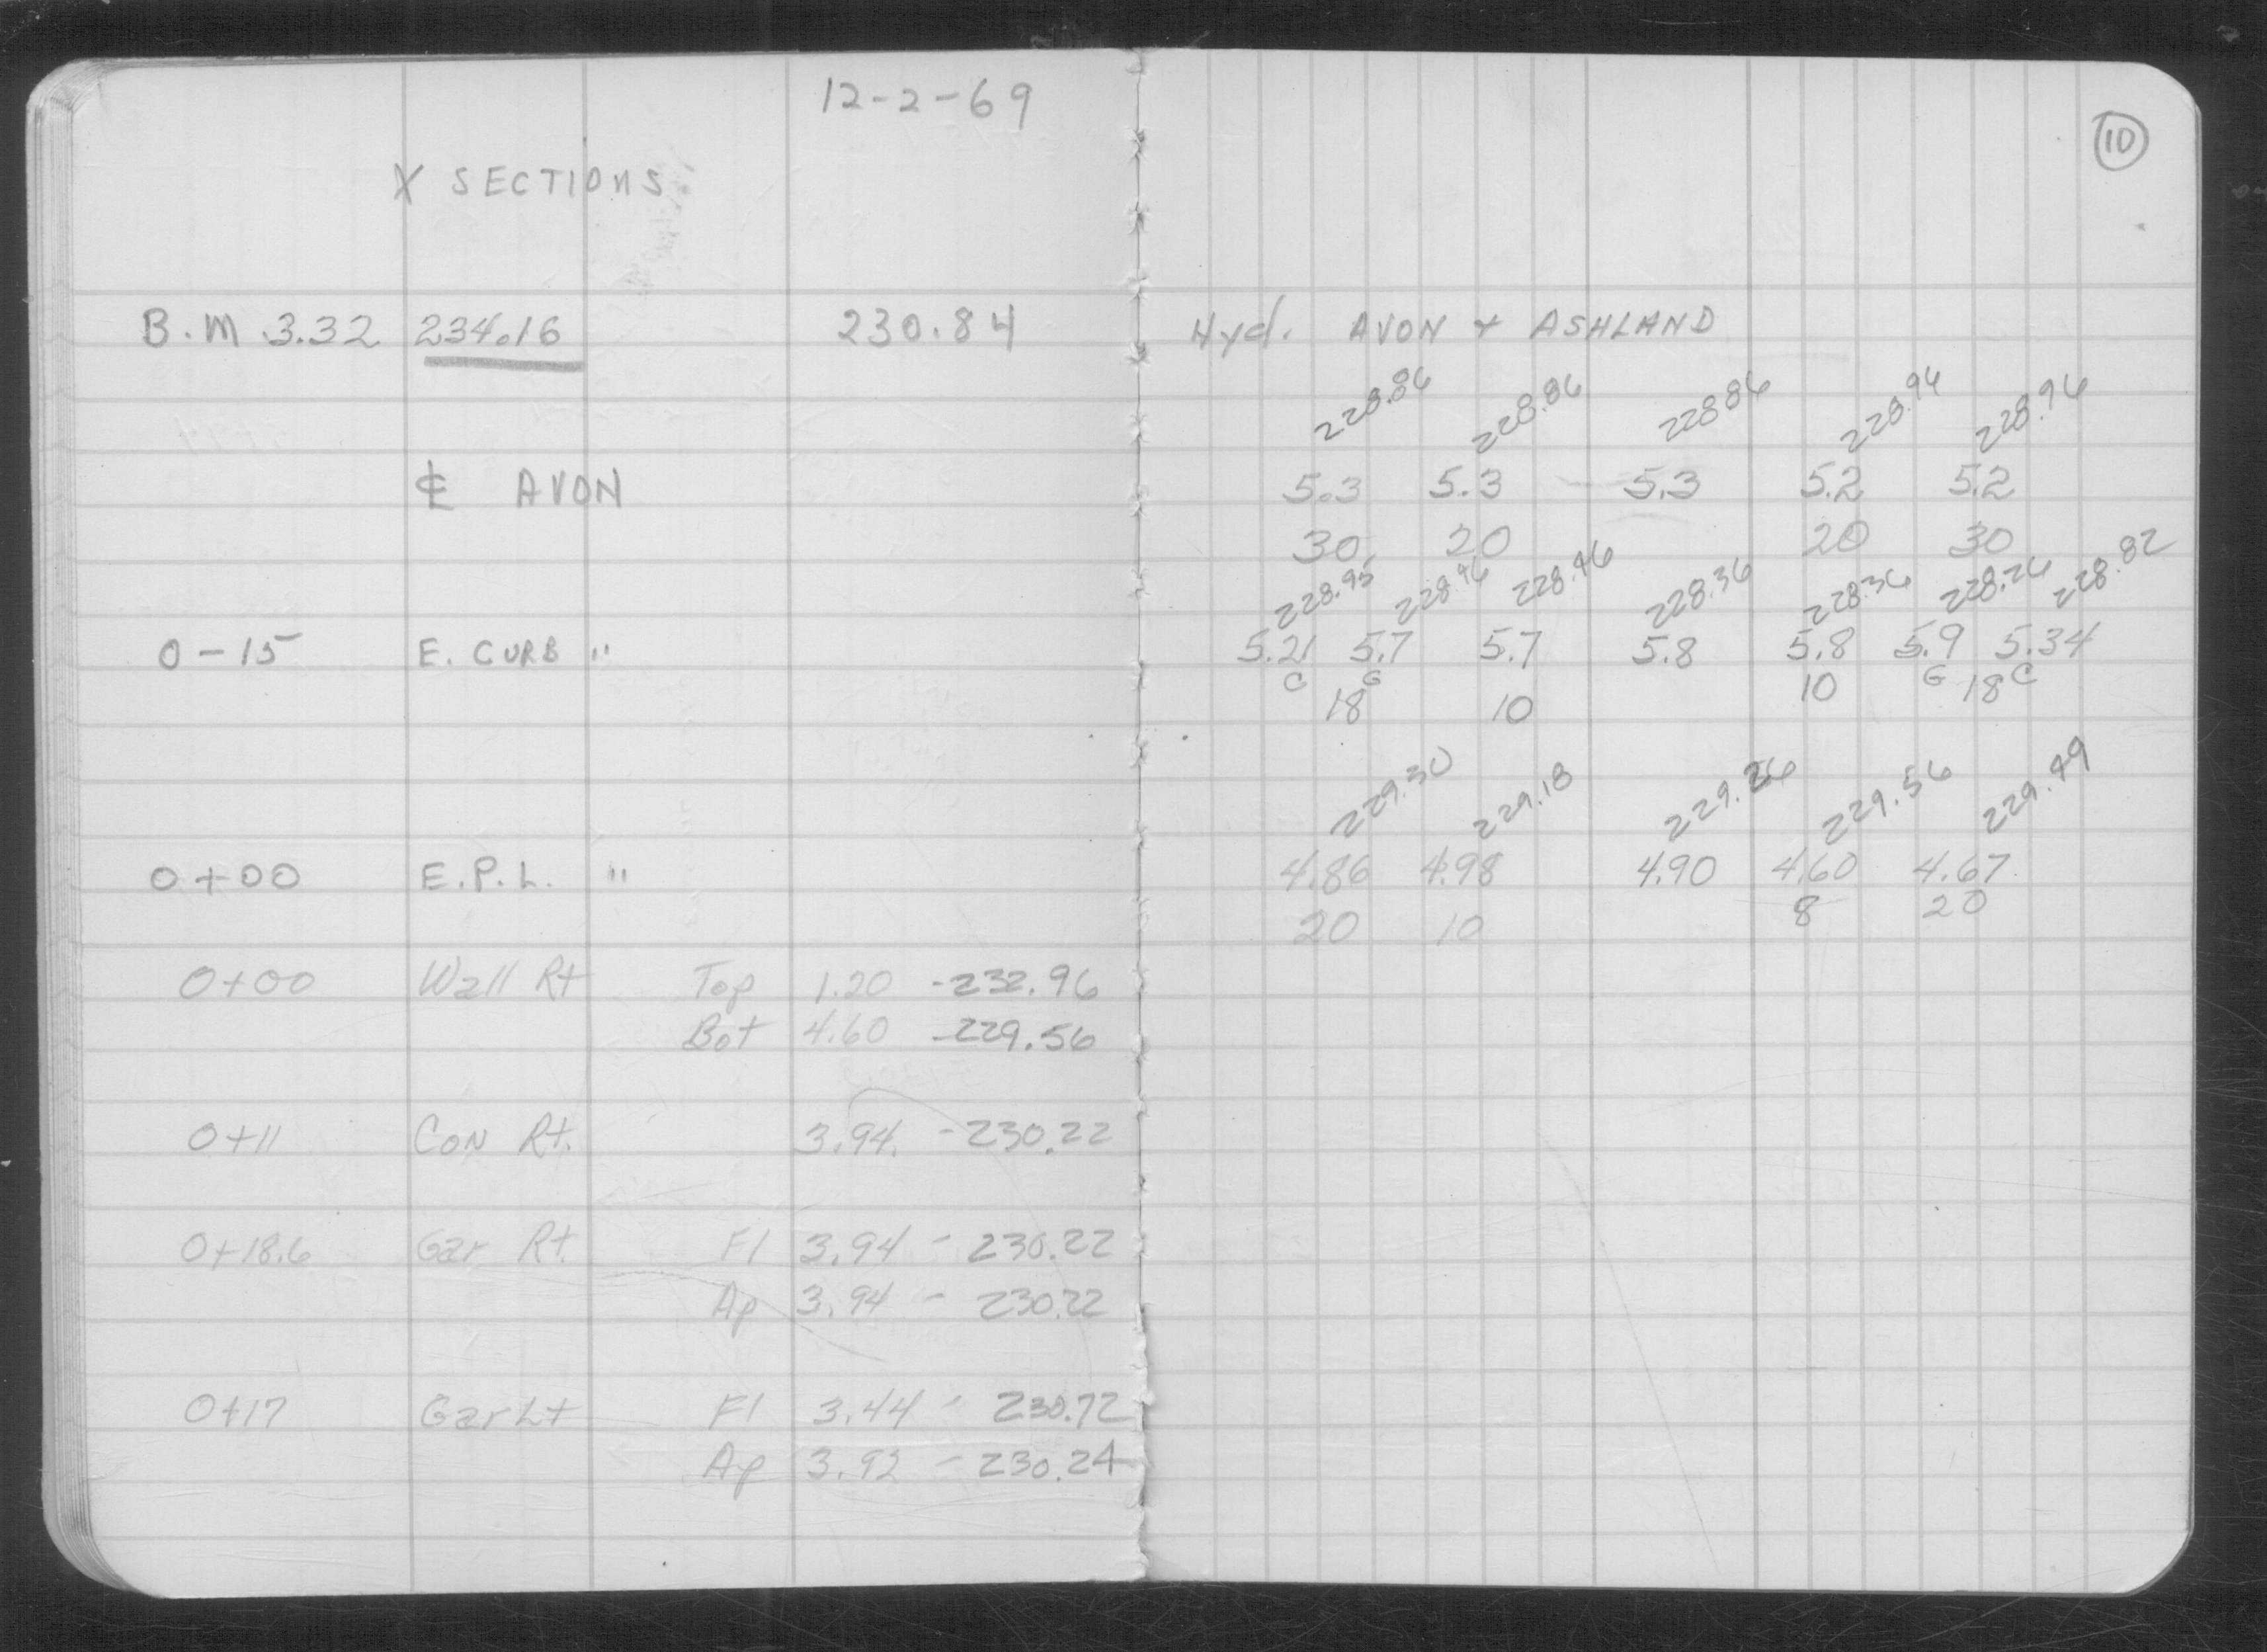 12-2-69
10
X SECTIONS
B.M 3.32 234.16 230.84 Hyd. AVON + ASHLAND
228.86 228.86 22886 228.94 228.96
℄ AVON 5.3 5.3 5.3 5.2 5.2
30 20 20 30
228.95 228.46 228.46 228.36 228.36 228.26 228.82
0-15 E. CURB " 5.21 5.7 5.7 5.8 5.8 5.9 5.34
C G 10 G C
18 10 18
229.30 229.18 229.26 229.56 229.49
0+00 E.P.L. " 4.86 4.98 4.90 4.60 4.67
20 10 8 20
0+00 Wall Rt Top 1.20 -232.96
Bot 4.60 -229.56
0+11 CON Rt. 3.94 -230.22
0+18.6 Gar Rt. Fl 3.94 - 230.22
Ap 3.94 - 230.22
0+17 Gar Lt Fl 3.44 - 230.72
Ap 3.92 - 230.24